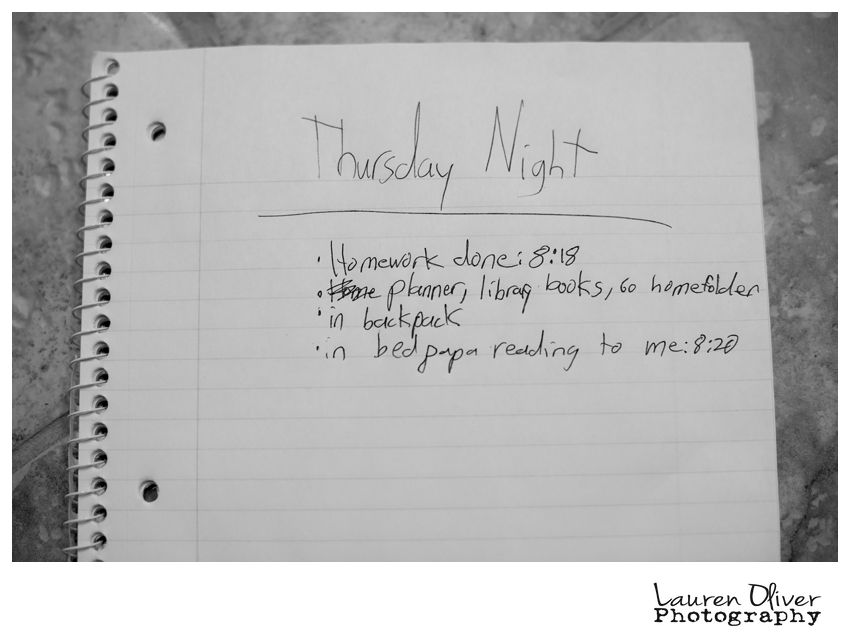 Thursday Night
· Homework done: 8:18
· planner, library books, Go homefolder
· in backpack
· in bed papa reading to me: 8:20
Lauren Oliver
Photography